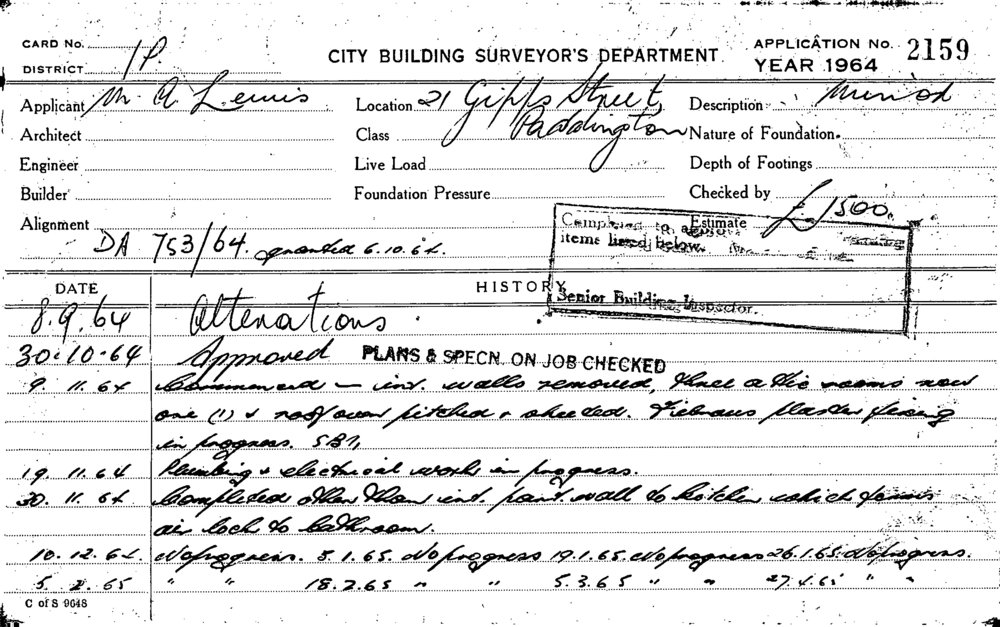 CARD No. 1P. CITY BUILDING SURVEYOR'S DEPARTMENT APPLICATION No. 2159
DISTRICT YEAR 1964
Applicant M A Lewis Location 21 Gipps Street, Description
Architect Class Paddington Nature of Foundation
Engineer Live Load Depth of Footings
Builder Foundation Pressure Checked by
Alignment Estimate £1500.
DA 753/64. granted 6.10.64.
Completed to
items listed below.
Senior Building Inspector.
DATE HISTORY
8.9.64 Alterations.
30.10.64 Approved PLANS & SPECN. ON JOB CHECKED
9. 11. 64 Commenced – int. walls removed, three attic rooms now
one (1) & roof over pitched & sheeded. Fiebrous plaster fixing
in progress.
19. 11. 64 Plumbing & electrical work in progress.
30. 11. 64 Completed other than int. part. wall to kitchen which forms
air lock to bathroom.
10. 12. 64. No progress. 5.1.65. No progress 19.1.65. No progress 26.1.65. No progress.
5. 2. 65 " " 18.2.65 " " 5.3.65 " " 27.4.65 " "
C of S 9648